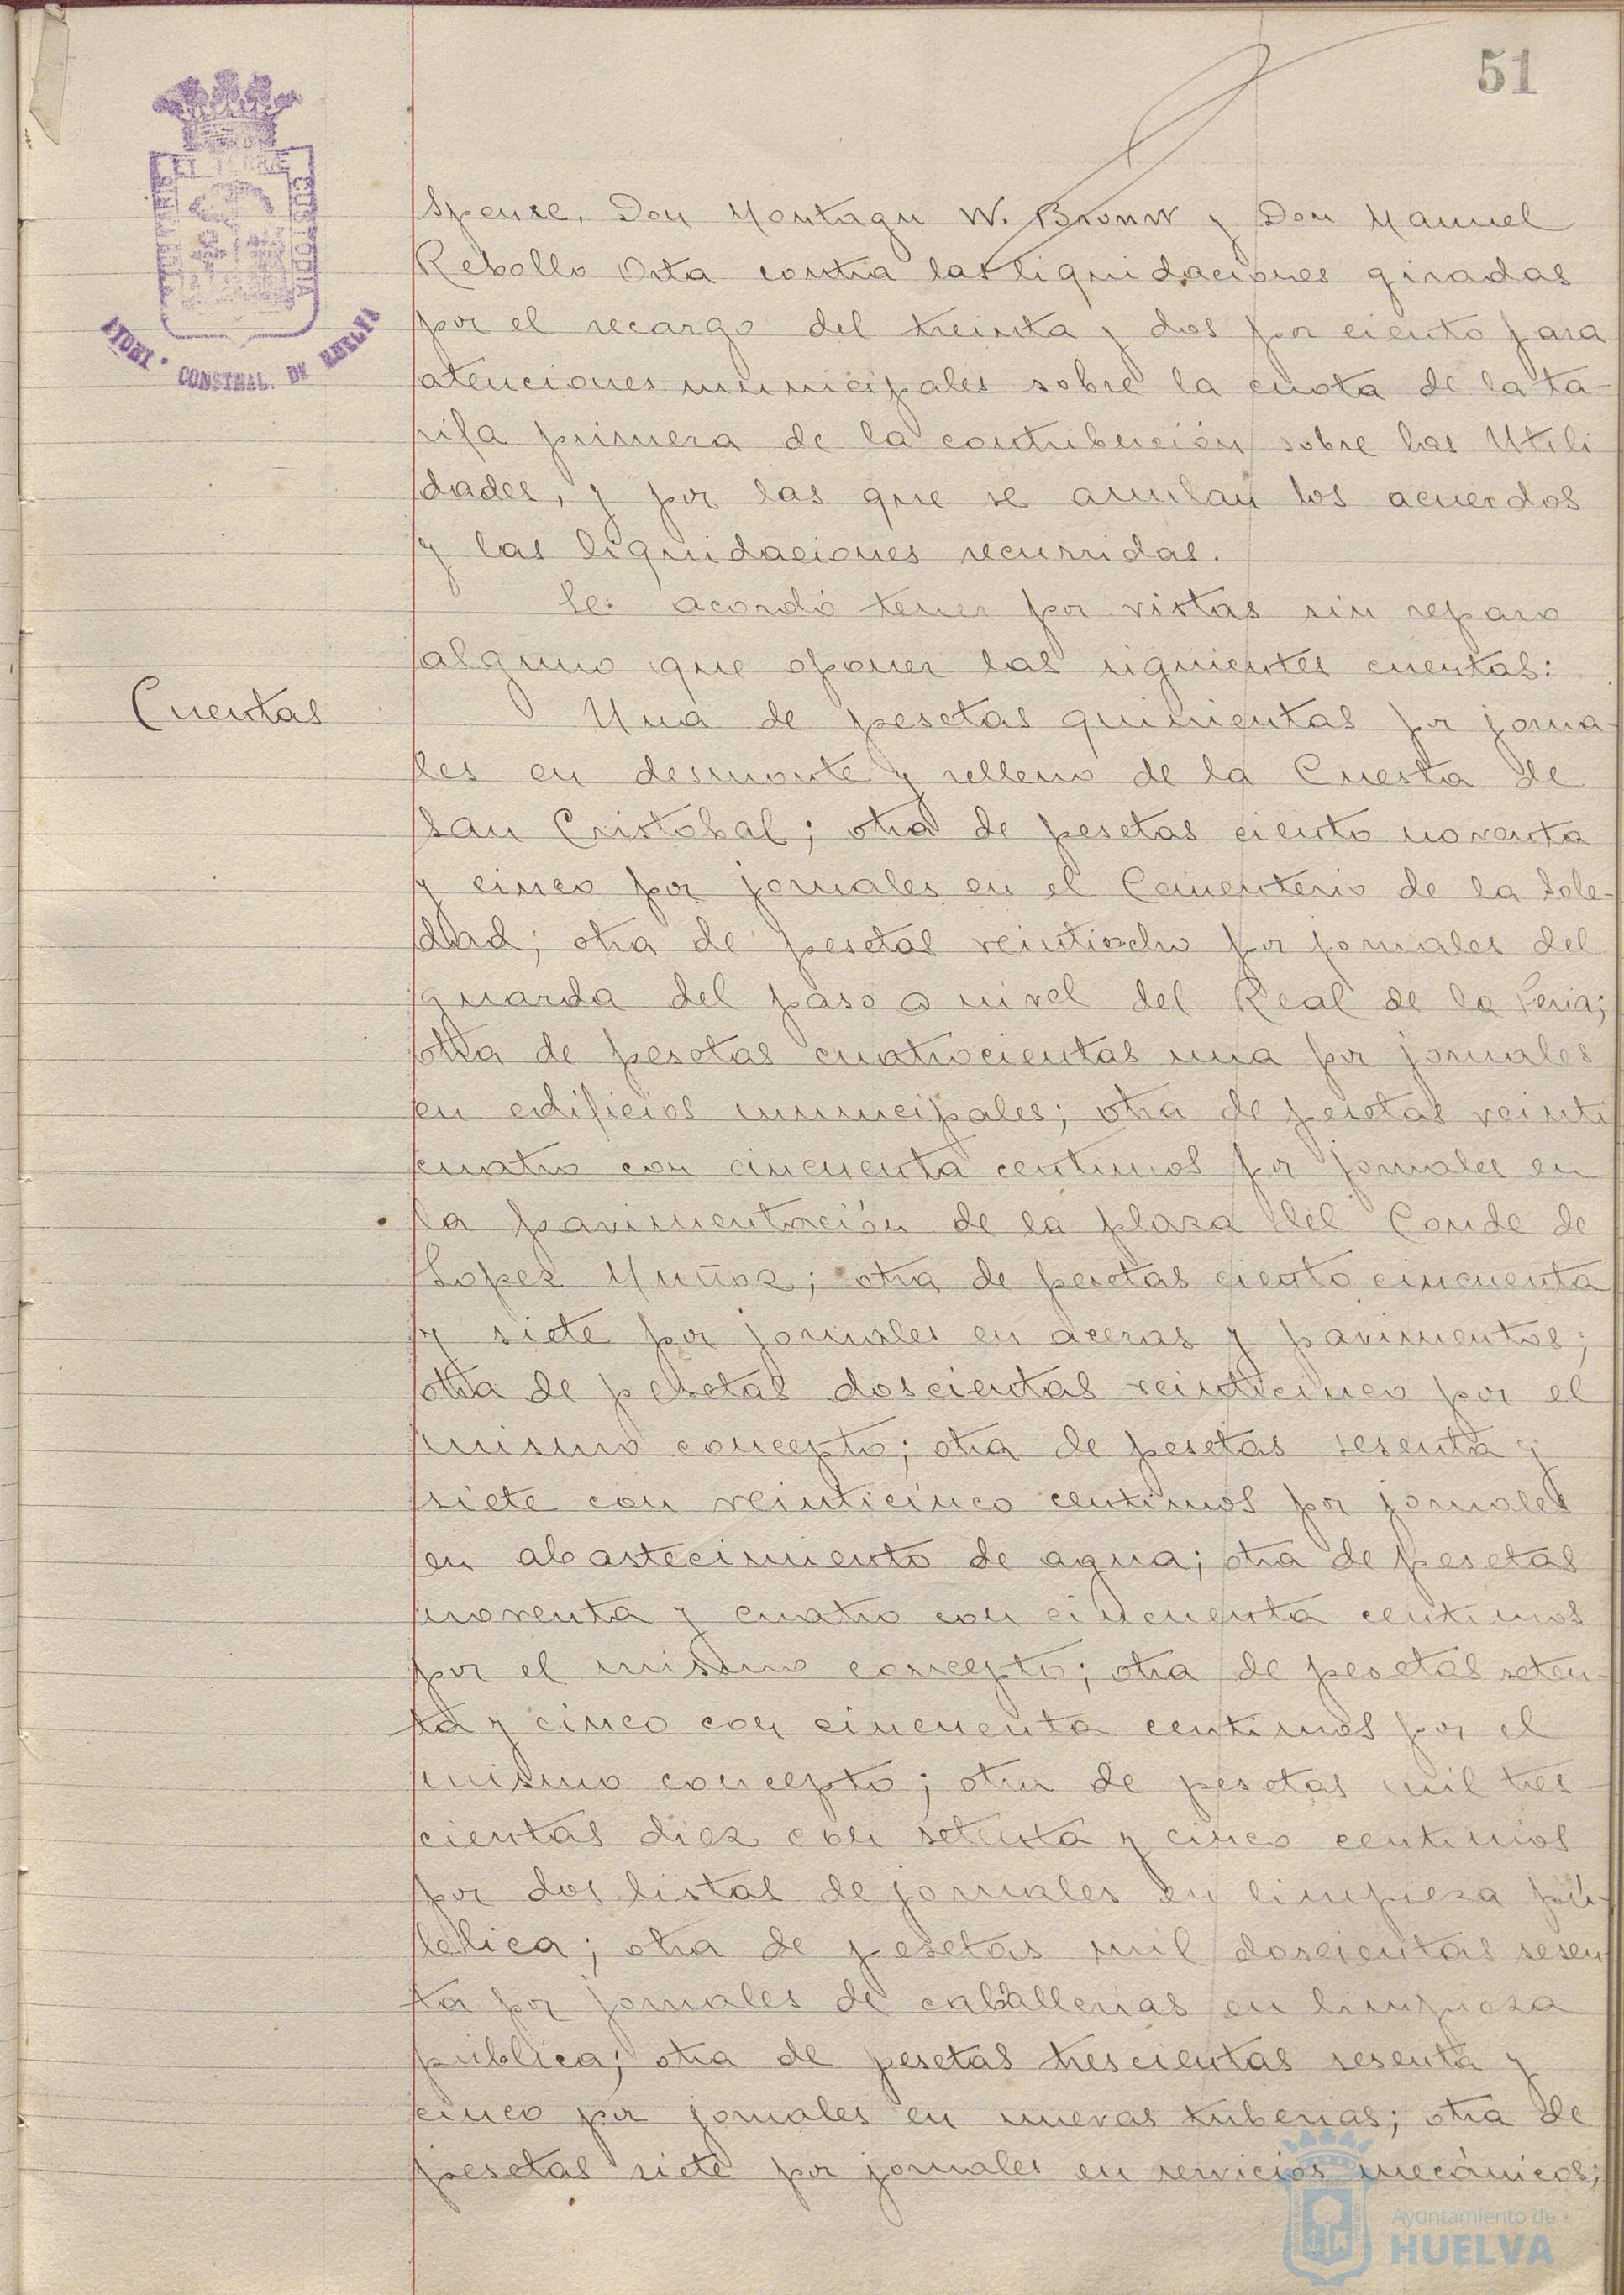 51
PORTUS MARIS ET TERRAE CUSTODIA
CONSTNAL. DE HUELVA
Spense, Don Montagu W. Bronw y Don Manuel
Rebollo Orta contra las liquidaciones giradas
por el recargo del treinta y dos por ciento para
atenciones municipales sobre la cuota de la ta-
rifa primera de la contribución sobre las Utili
dades, y por las que se anulan los acuerdos
y las liquidaciones recurridas.
Se acordó tener por vistas sin reparo
alguno que oponer las siguientes cuentas:
Cuentas
Una de pesetas quinientas por jorna-
les en desmonte y relleno de la Cuesta de
San Cristobal; otra de pesetas ciento noventa
y cinco por jornales en el Cementerio de la Sole-
dad; otra de pesetas veintiocho por jornales del
guarda del paso a nivel del Real de la Feria;
otra de pesetas cuatrocientas una por jornales
en edificios municipales; otra de pesetas veinti
cuatro con cincuenta centimos por jornales en
la pavimentación de la plaza del Conde de
Lopez Muñoz; otra de pesetas ciento cincuenta
y siete por jornales en aceras y pavimentos;
otra de pesetas doscientas veinticinco por el
mismo concepto; otra de pesetas sesenta y
siete con veinticinco centimos por jornales
en abastecimiento de agua; otra de pesetas
noventa y cuatro con cincuenta centimos
por el mismo concepto; otra de pesetas seten-
ta y cinco con cincuenta centimos por el
mismo concepto; otra de pesetas mil tres-
cientas diez con setenta y cinco centimos
por dos listas de jornales en limpieza pú-
blica; otra de pesetas mil doscientas sesen
ta por jornales de caballerias en limpieza
pública; otra de pesetas trescientas sesenta y
cinco por jornales en nuevas tuberias; otra de
pesetas siete por jornales en servicios mecánicos;
Ayuntamiento de
HUELVA